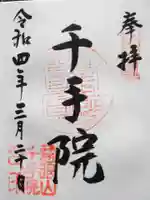 奉拝
千手院
令和四年三月二十日